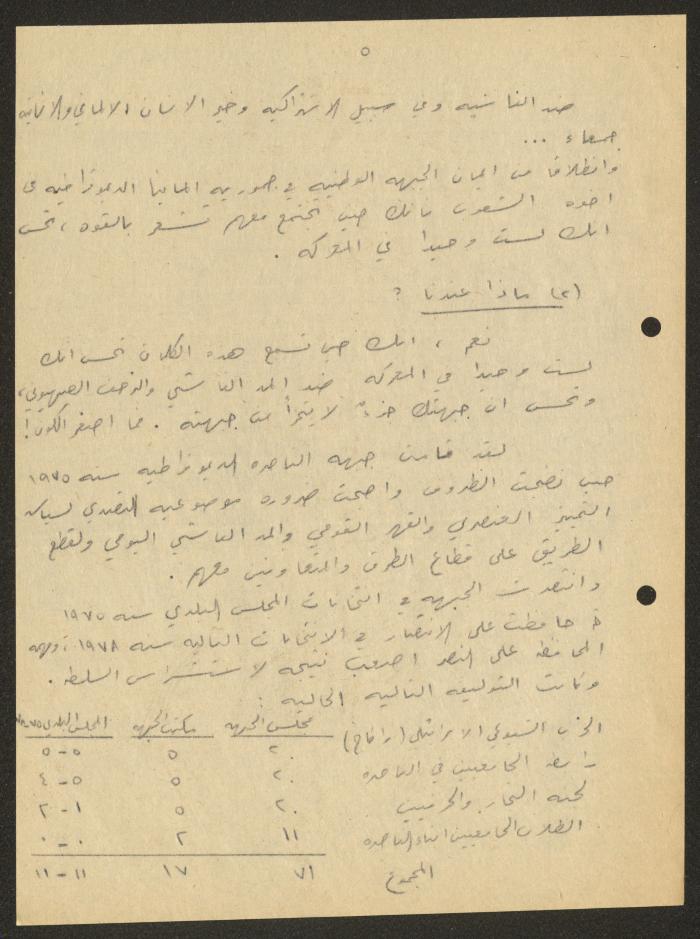 ٥
ضد الفاشيه وفي سبيل الاشتراكيه وخير الانسان الالماني والانسانيه
جمعاء ...
وانطلاقا من ايمان الجبهه الوطنيه في جمهوريه المانيا الديموقراطيه في
اخوه الشعوب فانك حين تجتمع معهم تشعر بالقوه ، تحس
انك لست وحيدا في المعركه .
(٢) ماذا عندنا ؟
نعم ، انك حين تسمع هذه الكلمات تحس انك
لست وحيدا في المعركه ضد المد الفاشي والزحف الصهيوني،
وتحس ان جبهتك جزءٌ لا يتجزأ من جبهته . فما اصغر الكون!
لقد قامت جبهه الناصره الديموقراطيه سنه ١٩٧٥
حين نضجت الظروف واضحت ضروره موضوعيه للتصدي لسياسه
التمييز العنصري والقهر القومي والمد الفاشي اليومي ولقطع
الطريق على قطاع الطرق والمتعاونين معهم .
وانتصرت الجبهه في انتخابات المجلس البلدي سنه ١٩٧٥
ثم حافظت على الانتصار في الانتخابات التاليه سنه ١٩٧٨ ، ومهمه
المحافظه على النصر اصعب نتيجه لاستشراس السلطه .
وكانت التوليفه التاليه الحاليه :
مجلس الجبهه مكتب الجبهه المجلس البلدي ٧٥-٧٨
الحزب الشيوعي الاسرائيلي (راكاح) ٢٠ ٥ ٥-٥
رابطه الجامعيين في الناصره ٢٠ ٥ ٥-٤
لجنه التجار والحرفيين ٢٠ ٥ ١-٢
الطلاب الجامعيين ابناء الناصره ١١ ٢ ٠-٠
المجموع ٧١ ١٧ ١١-١١